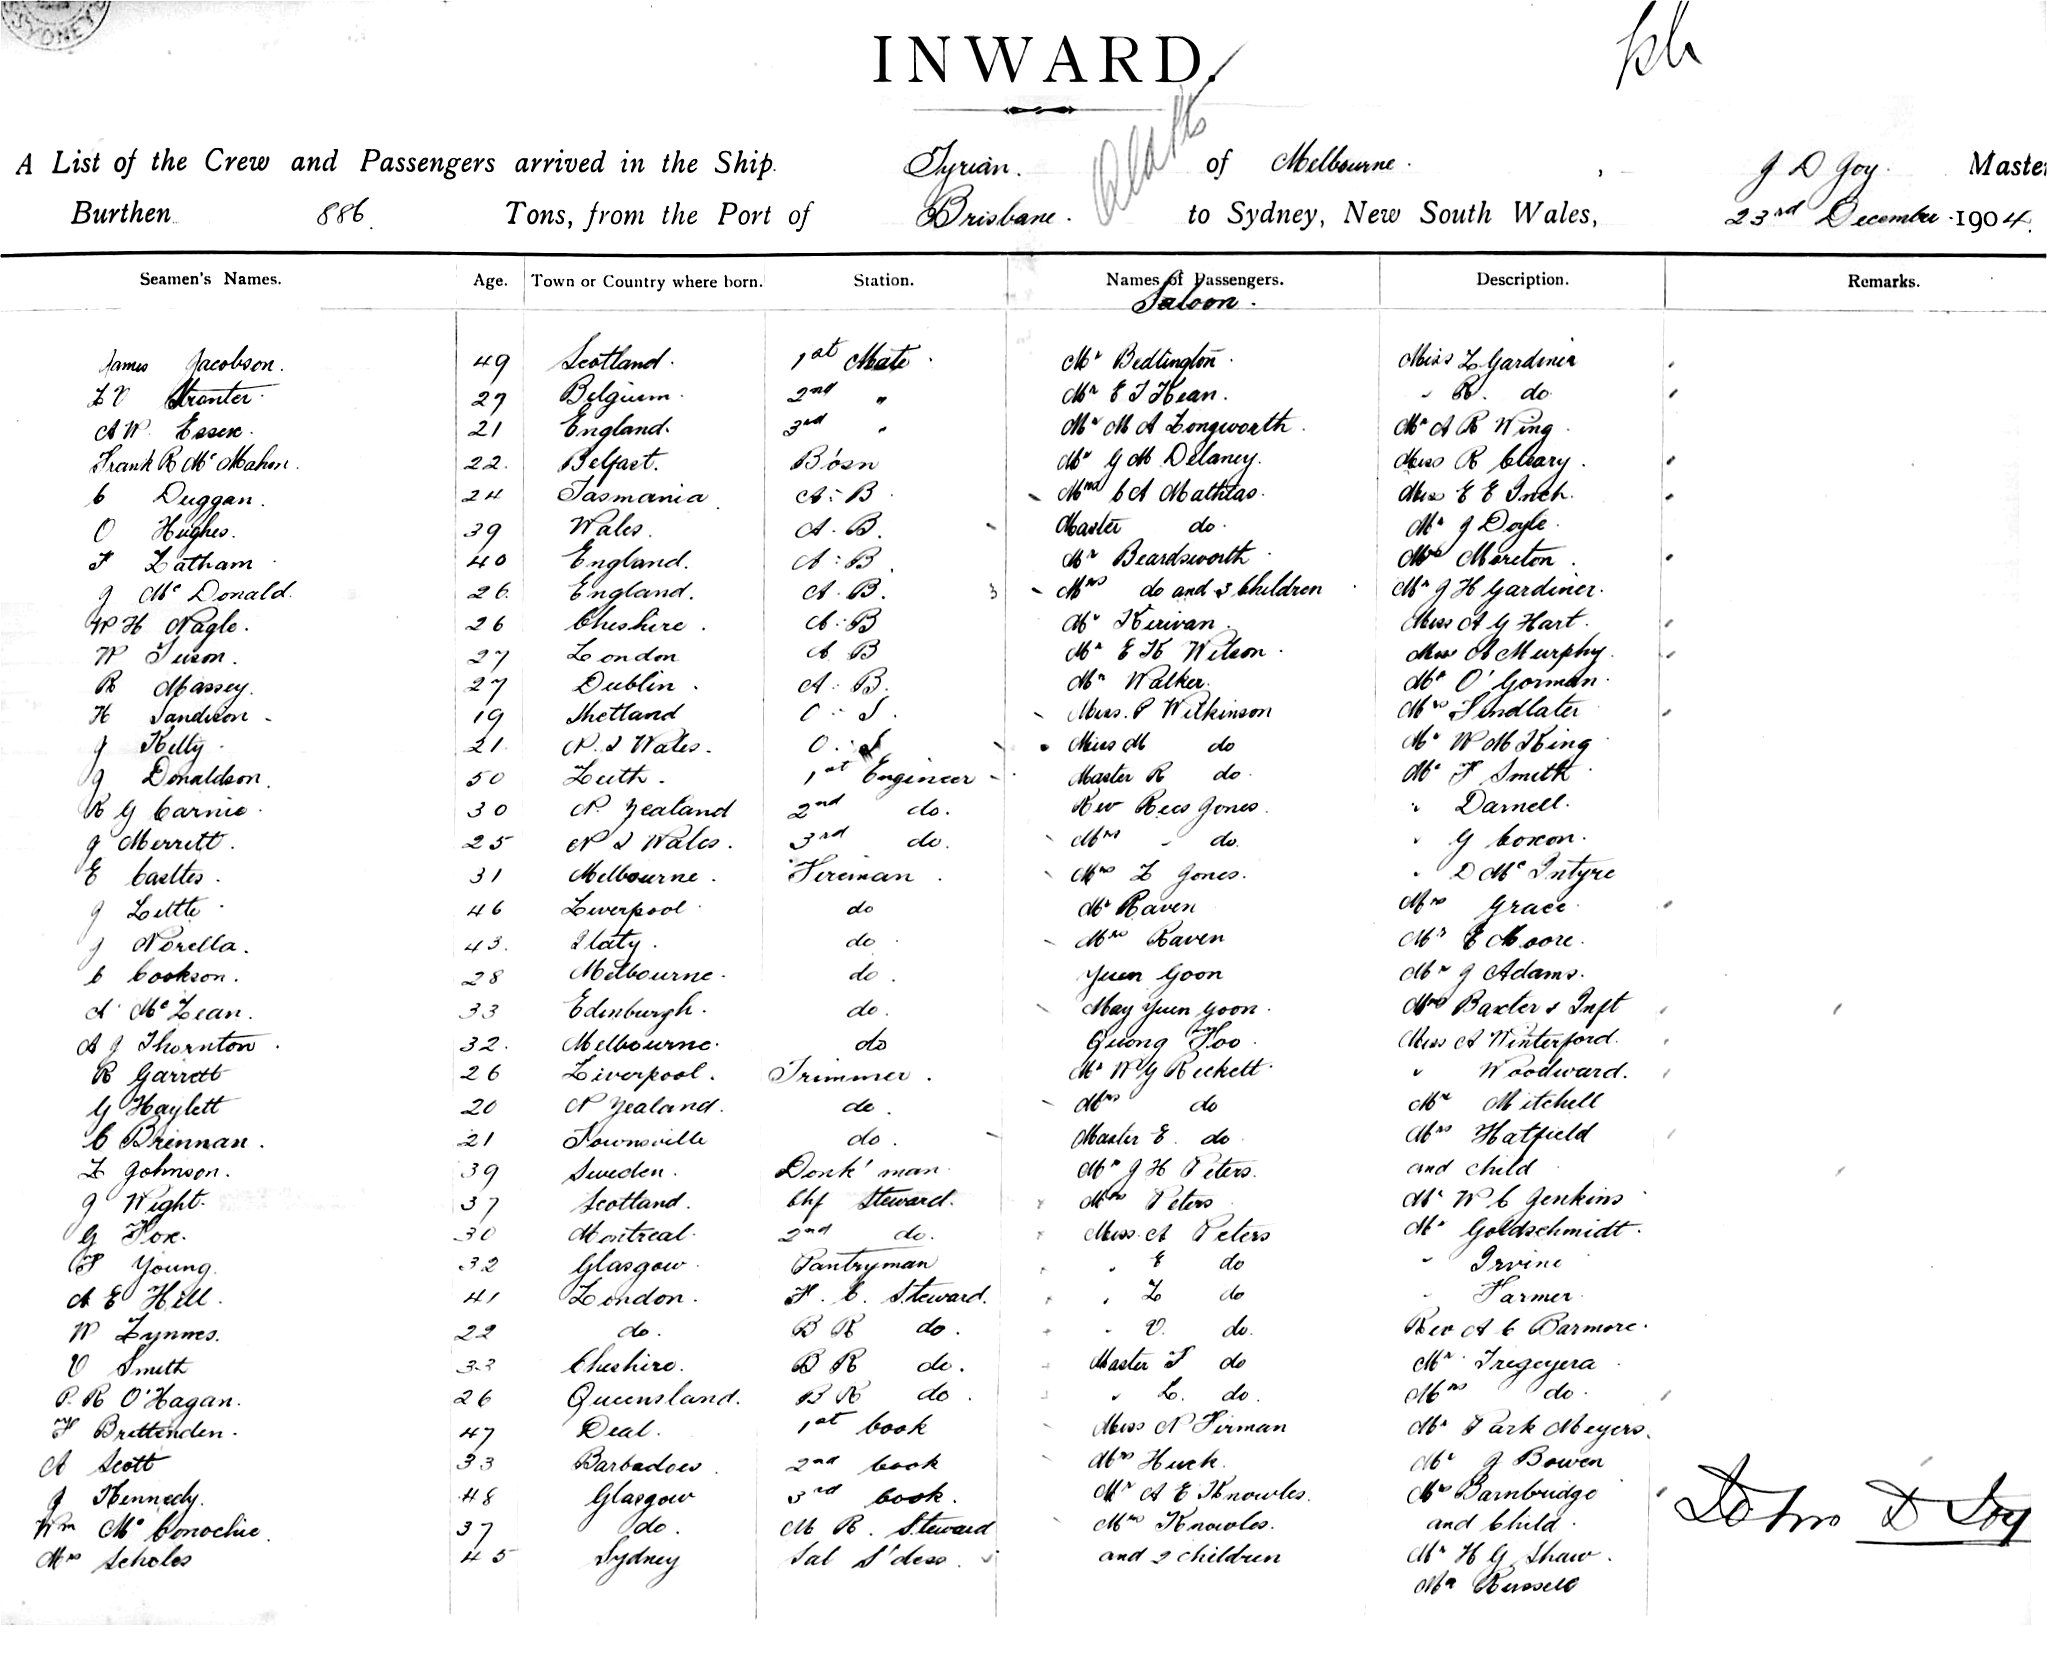 SYDNEY
INWARD.
A List of the Crew and Passengers arrived in the Ship Tyrian. of Melbourne. , J D Joy. Master
Burthen 886 Tons, from the Port of Brisbane. to Sydney, New South Wales, 23rd December 1904.
Seamen's Names. Age. Town or Country where born. Station. Names of Passengers. Description. Remarks.
Saloon.
James Jacobson. 49 Scotland. 1st Mate. Mr Bedlington. Miss L Gardiner
L V Tranter. 27 Belgium. 2nd " Mr E J Kean. " R. do
A W. Essex. 21 England. 3rd " Mr M A Longworth. Mr A R Wing.
Frank R Mc Mahon. 22. Belfast. Bosn Mr G M Delaney. Miss R Cleary.
C Duggan. 24 Tasmania. A : B. Mrs C A Mathias. Miss E E Inch.
O Hughes. 39 Wales. A. B. Master do. Mr J Doyle.
F Latham 40 England. A : B. Mr Beardsworth Mrs Moreton.
J Mc Donald. 26. England. A. B. 3 Mrs do and 3 Children Mr J H Gardiner.
W H Nagle. 26 Cheshire. A : B Mr Kirivan. Miss A G Hart.
W Tuson. 27 London A B Mr E K Wilson. Miss A Murphy.
R Massey. 27 Dublin. A : B. Mr Walker. Mr O'Gorman.
H Sandison 19 Shetland O : S. Miss. P Wilkinson Mrs Findlater
J Kelly. 21. N. S Wales. O. : S Miss M do Mr W M King
J Donaldson. 50 Leith. 1st Engineer Master R do. Mr F Smith
R G Carnie. 30 N. Zealand 2nd do. Rev Rees Jones. " Darnell.
J Merrett. 25 N S Wales. 3rd do. Mrs " do. " G Coxon.
E Castles. 31 Melbourne. Fireman. Mrs L Jones. " D Mc Intyre
J Little 46 Liverpool do Mr Raven Mrs Grace.
J Norella. 43. Italy. do Mrs Raven Mr E Moore.
C Cookson. 28 Melbourne. do. Yuen Goon Mr J Adams.
A Mc Lean. 33 Edinburgh. do. May Yuen Goon. Mrs Baxter & Inft
A J Thornton. 32. Melbourne. do Quong Foo. Miss A Winterford.
R Garrett 26 Liverpool. Trimmer. Mr W G Reckett. " Woodward.
G Haylett 20 N Zealand. do. Mrs do Mr Mitchell
C Brennan. 21 Townsville do. Master E. do Mrs Hatfield
L Johnson. 39 Sweden. Donk' man Mr J H Peters. and child
J Wight. 37 Scotland. Chf Steward. Mrs Peters Mr W C Jenkins
G Fox. 30 Montreal. 2nd do. Miss. A Peters Mr Goldschmidt.
F Young. 32 Glasgow. Pantryman " E do " Irvine
A E Hill. 41 London. F. C. Steward. " L do " Farmer.
W Lynnes. 22 do. B R do. " V. do. Rev A C Barmore.
V Smith 33 Cheshire. B R do. Master F do Mr Tregeyera
P. R O'Hagan. 26 Queensland. B R do. " L. do. Mrs do.
F Brettenden. 47 Deal. 1st Cook Miss N Firman Mr Park Meyers.
A Scott 33 Barbadoes. 2nd Cook Mrs Huck. Mr J Bowen
J Kennedy. 48 Glasgow 3rd Cook. Mr A E Knowles. Mrs Barnbridge
Wm Mc Conochie. 37 do. M R. Steward Mrs Knowles. and Child. John D Joy
Mrs Scholes 45 Sydney Sal S'dess. and 2 children Mr H G Shaw.
Mr Russell